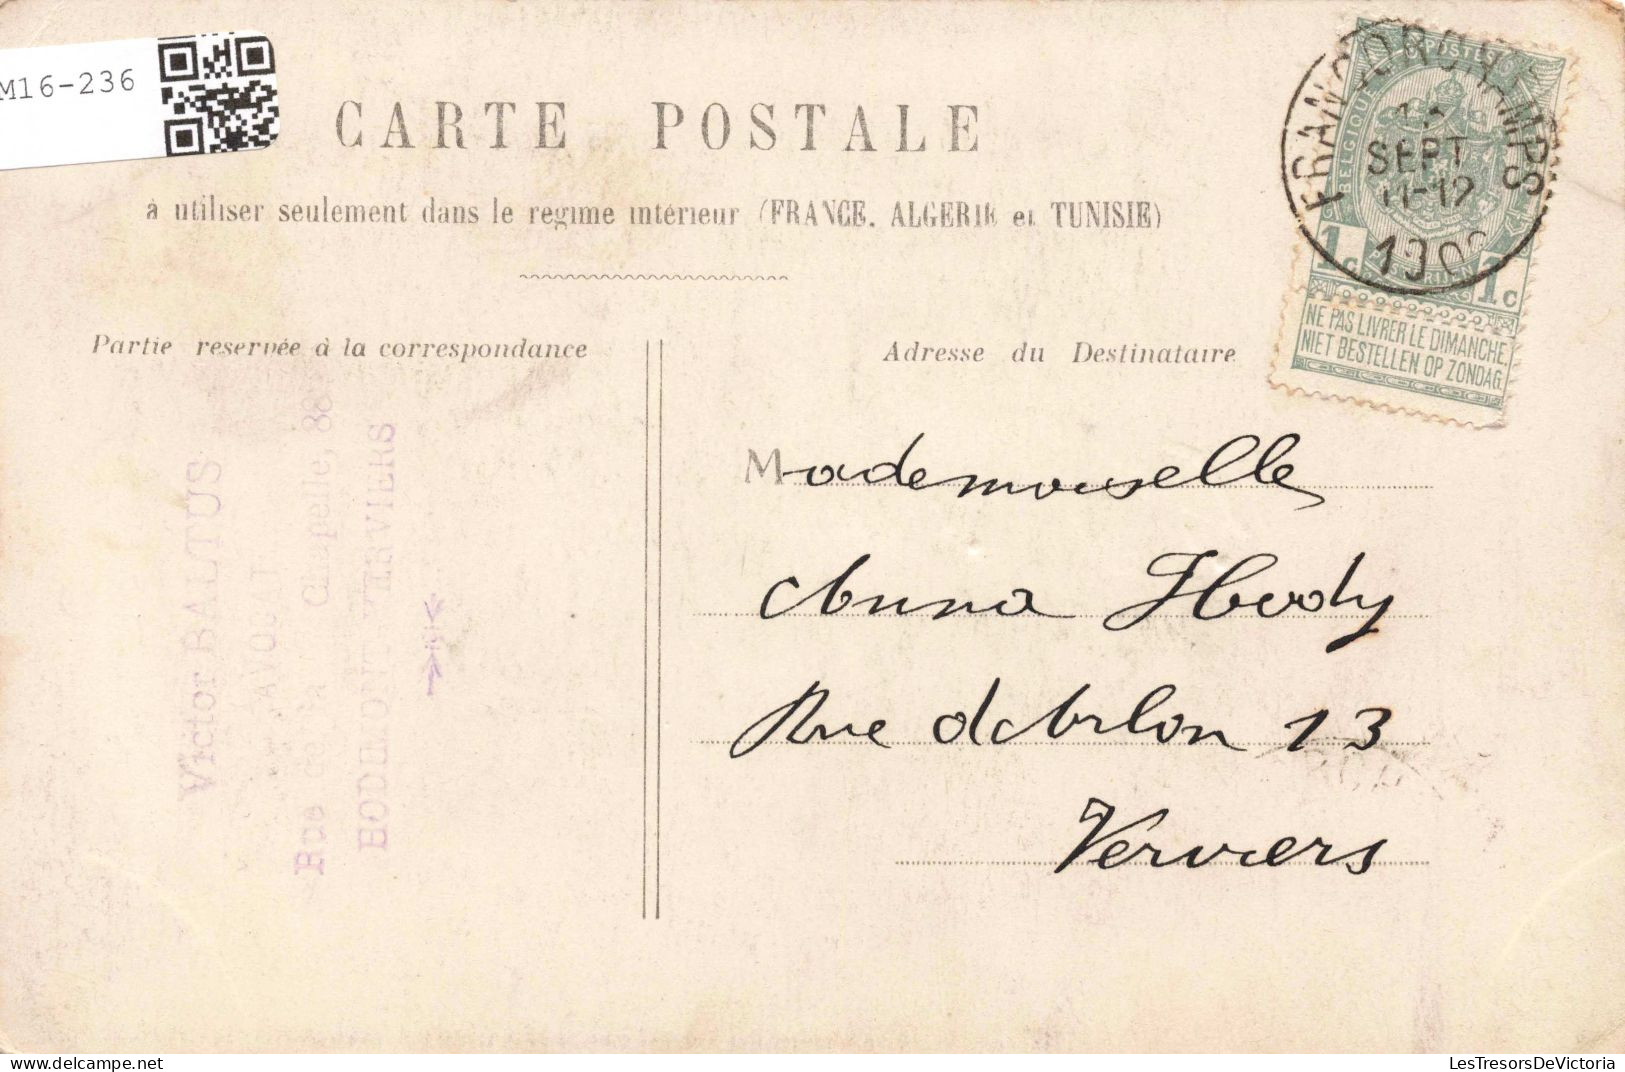 M16-236
CARTE POSTALE
à utiliser seulement dans le régime intérieur (FRANCE, ALGERIE et TUNISIE)
Partie reservée à la correspondance
Adresse du Destinataire
FRANCORCHAMPS
SEPT
11-12
BELGIQUE
1c 1c
NE PAS LIVRER LE DIMANCHE
NIET BESTELLEN OP ZONDAG
Mademoiselle
Anna
Rue d'Arlon 13
Verviers
Victor BALTUS
Rue Chapelle, 88
HODIMONT VERVIERS
LesTresorsDeVictoria